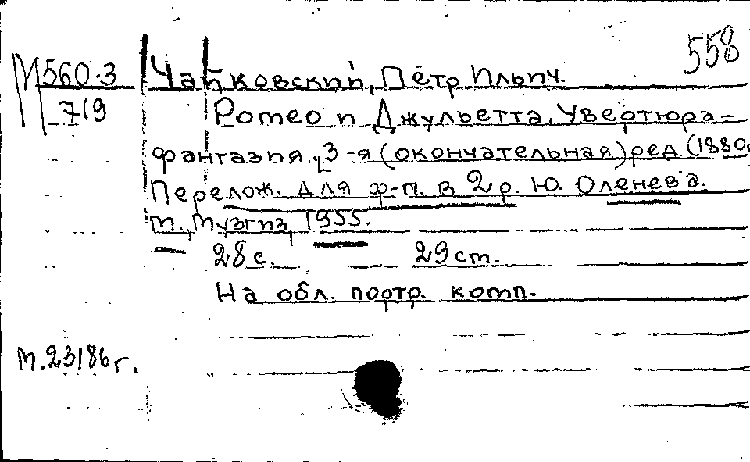 558
М560-3 Чайковский, Пётр Ильич.
719 Ромео и Джульетта. Увертюра-
фантазия. 3-я (окончательная) ред (1880
Перелож. для ф-п. в 2 р. Ю. Оленева.
М., Музгиз, 1955.
28 с. 29 см.
На обл. портр. комп.
М.23186 г.